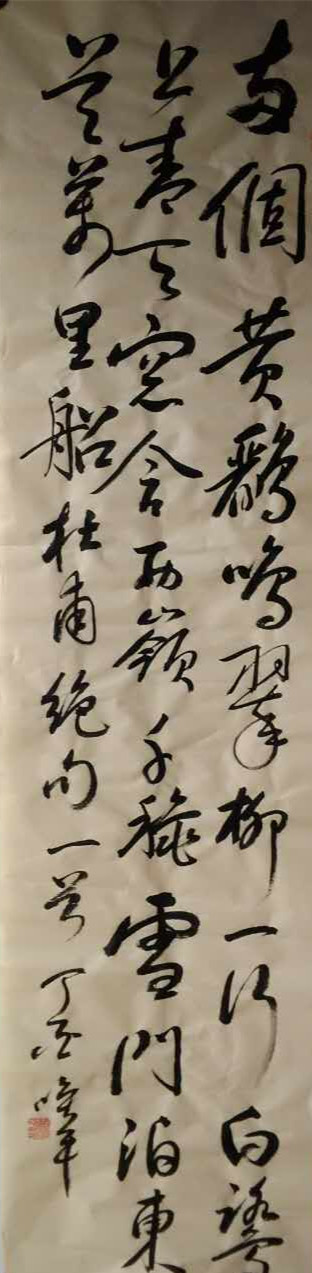 两個黄鸝鳴翠柳一行白鷺
上青天窓含西嶺千秋雪門泊東
吴萬里船杜甫絶句一首丁酉